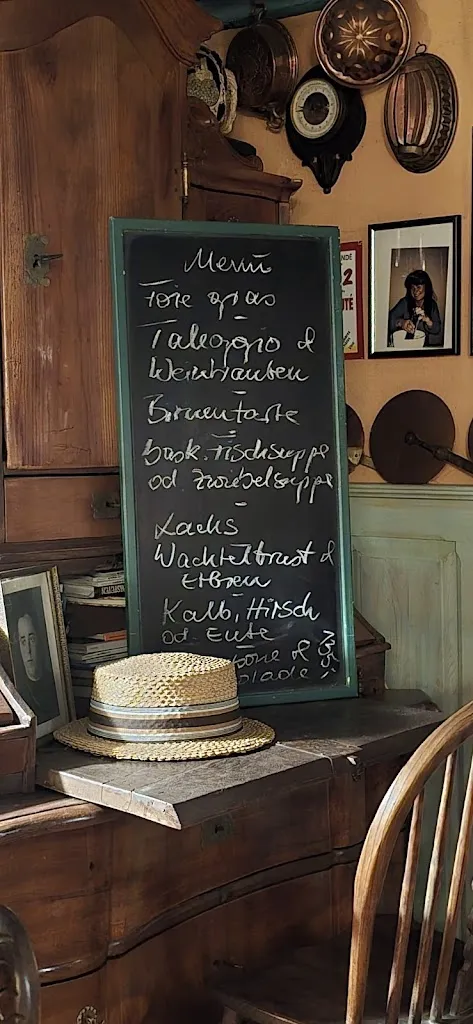 Menü
Foie gras
Taleggio &
Weintrauben
Birnentarte
bask. Fischsuppe
od Zwiebelsuppe
Lachs
Wachtelbrust &
Erbsen
Kalb, Hirsch
od. Ente
&
olade
2
UTÉ